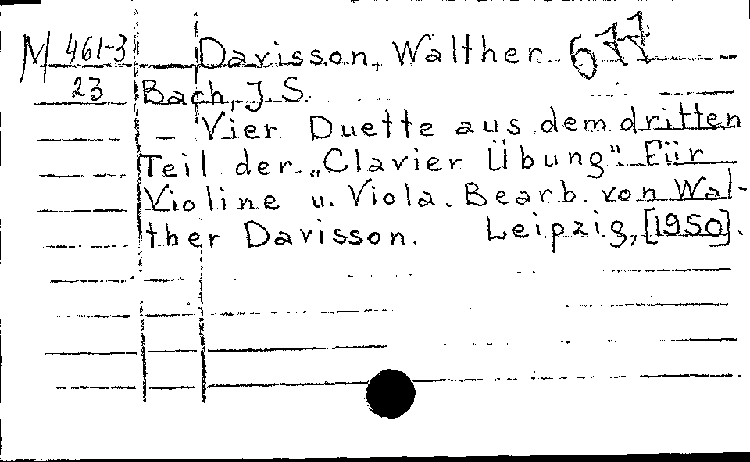 M 461-3 Davisson, Walther 677
23 Bach, J. S.
– Vier Duette aus dem dritten
Teil der „Clavier Übung“. Für
Violine u. Viola. Bearb. von Wal-
ther Davisson. Leipzig, [1950].